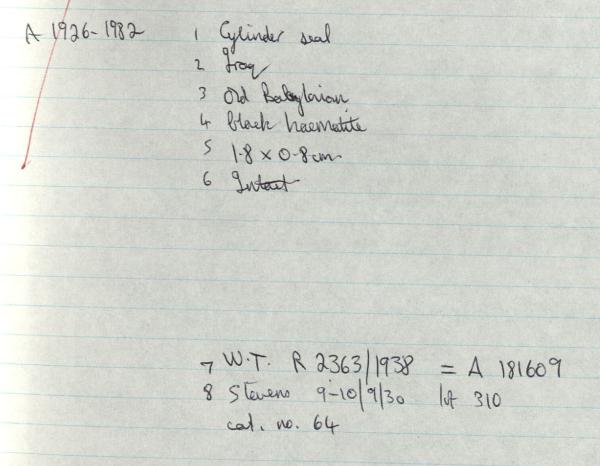 A 1926-1982 1 Cylinder seal
2 Iraq
3 Old Babylonian
4 black haematite
5 1.8 × 0.8cm
6 Intact
7 W.T. R 2363/1938 = A 181609
8 Stevens 9-10/9/30 lot 310
cat. no. 64